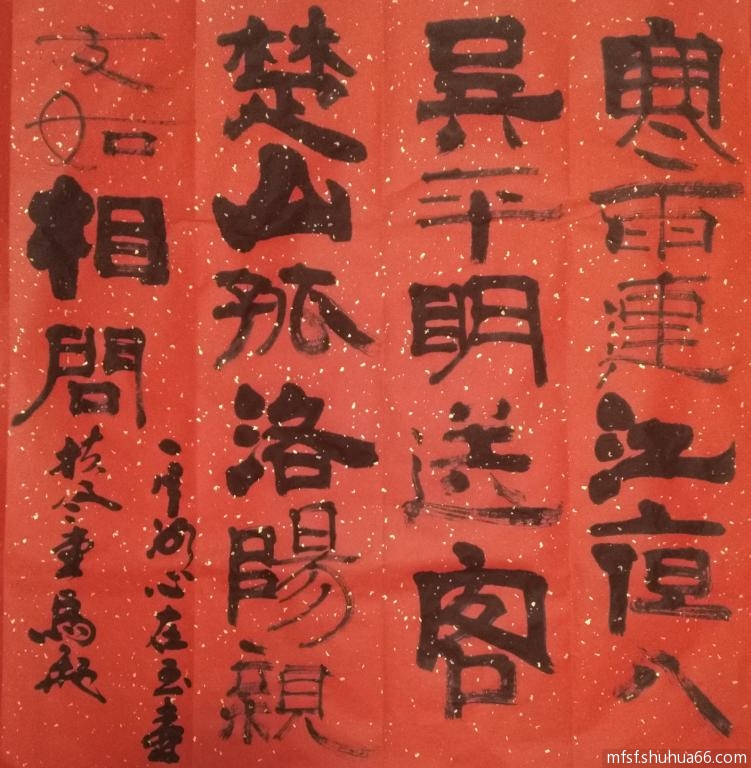 寒雨連江亱入
吳平明送客
楚山孤洛陽親
友如相問
一片冰心在玉壺
mfsf.shuhua66.com